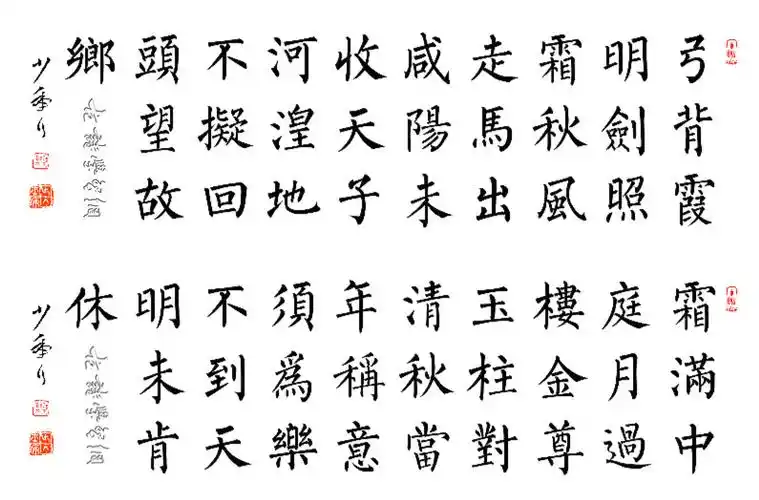 弓背霞
明劍照
霜秋風
走馬出
咸陽未
收天子
河湟地
不擬回
頭望故
鄉
少年行
霜滿中
庭月過
樓金尊
玉柱對
清秋當
年稱意
須爲樂
不到天
明未肯
休
少年行